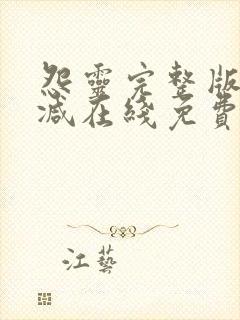 怨靈完整版
减在綫免費
江藝